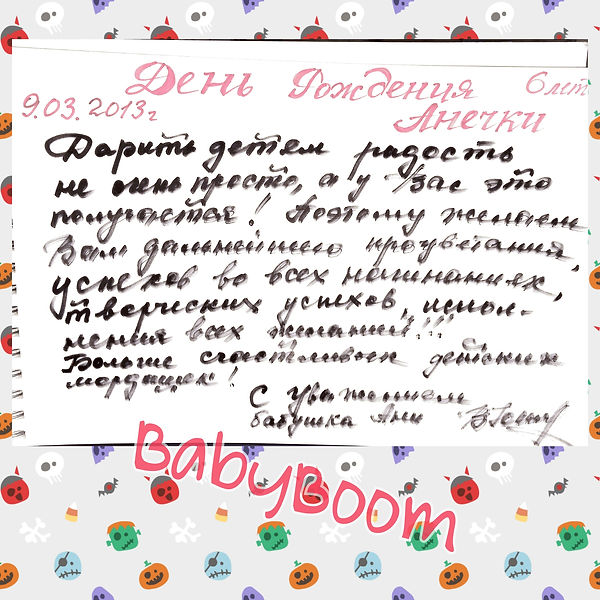 День Рождения 6 лет
9.03.2013г Анечки
Дарить детям радость
не очень просто, а у Вас это
получается! Поэтому желаем
Вам дальнейшего процветания,
успехов во всех начинаниях,
творческих успехов, испол-
нения всех желаний!!!
Больше счастливых детских
мордашек!
С уважением
бабушка Ани
BabyBoom